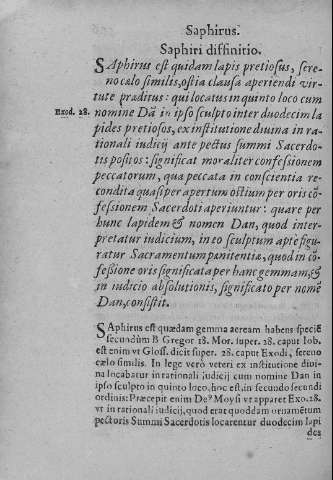 Saphirus.
Saphiri diffinitio.
SAphirus est quidam lapis pretiosus, sere-
no cælo similis, ostia clausa aperiendi vir-
tute præditus: qui locatus in quinto loco cum
Exod. 28.
nomine Dā in ipso sculpto inter duodecim la
pides pretiosos, ex institutione diuina in ra-
tionali iudicij ante pectus summi Sacerdo-
tis positos: significat moraliter confessionem
peccatorum, qua peccata in conscientia re-
condita quasi per apertum ostium per oris cō-
fessionem Sacerdoti aperiuntur: quare per
hunc lapidem & nomen Dan, quod inter-
pretatur iudicium, in eo sculptum apte figu-
ratur Sacramentum pœnitentiæ, quod in cō-
fessione oris significata per hanc gemmam, &
in iudicio absolutionis, significato per nomē
Dan, consistit.
SAphirus est quædam gemma aeream habens speciē
secundùm B Gregor 18. Mor. super. 28. caput Iob.
est enim vt Gloss. dicit super. 28. caput Exodi, sereno
cælo similis. In lege verò veteri ex institutione diui-
na locabatur in rationali iudicij cum nomine Dan in
ipso sculpto in quinto loco, hoc est, in secundo secundi
ordinis: Præcepit enim Deꝰ Moysi vt apparet Exo. 28.
vt in rationali iudicij, quod erat quoddam ornamētum
pectoris Summi Sacerdotis locarentur duodecim lapi
des